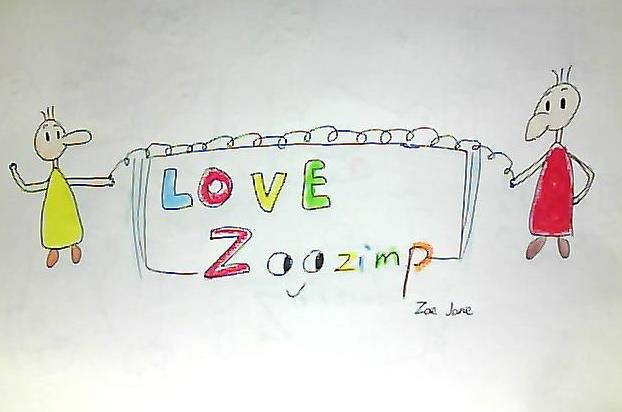 LOVE
Zoozimp
Zoe Jane